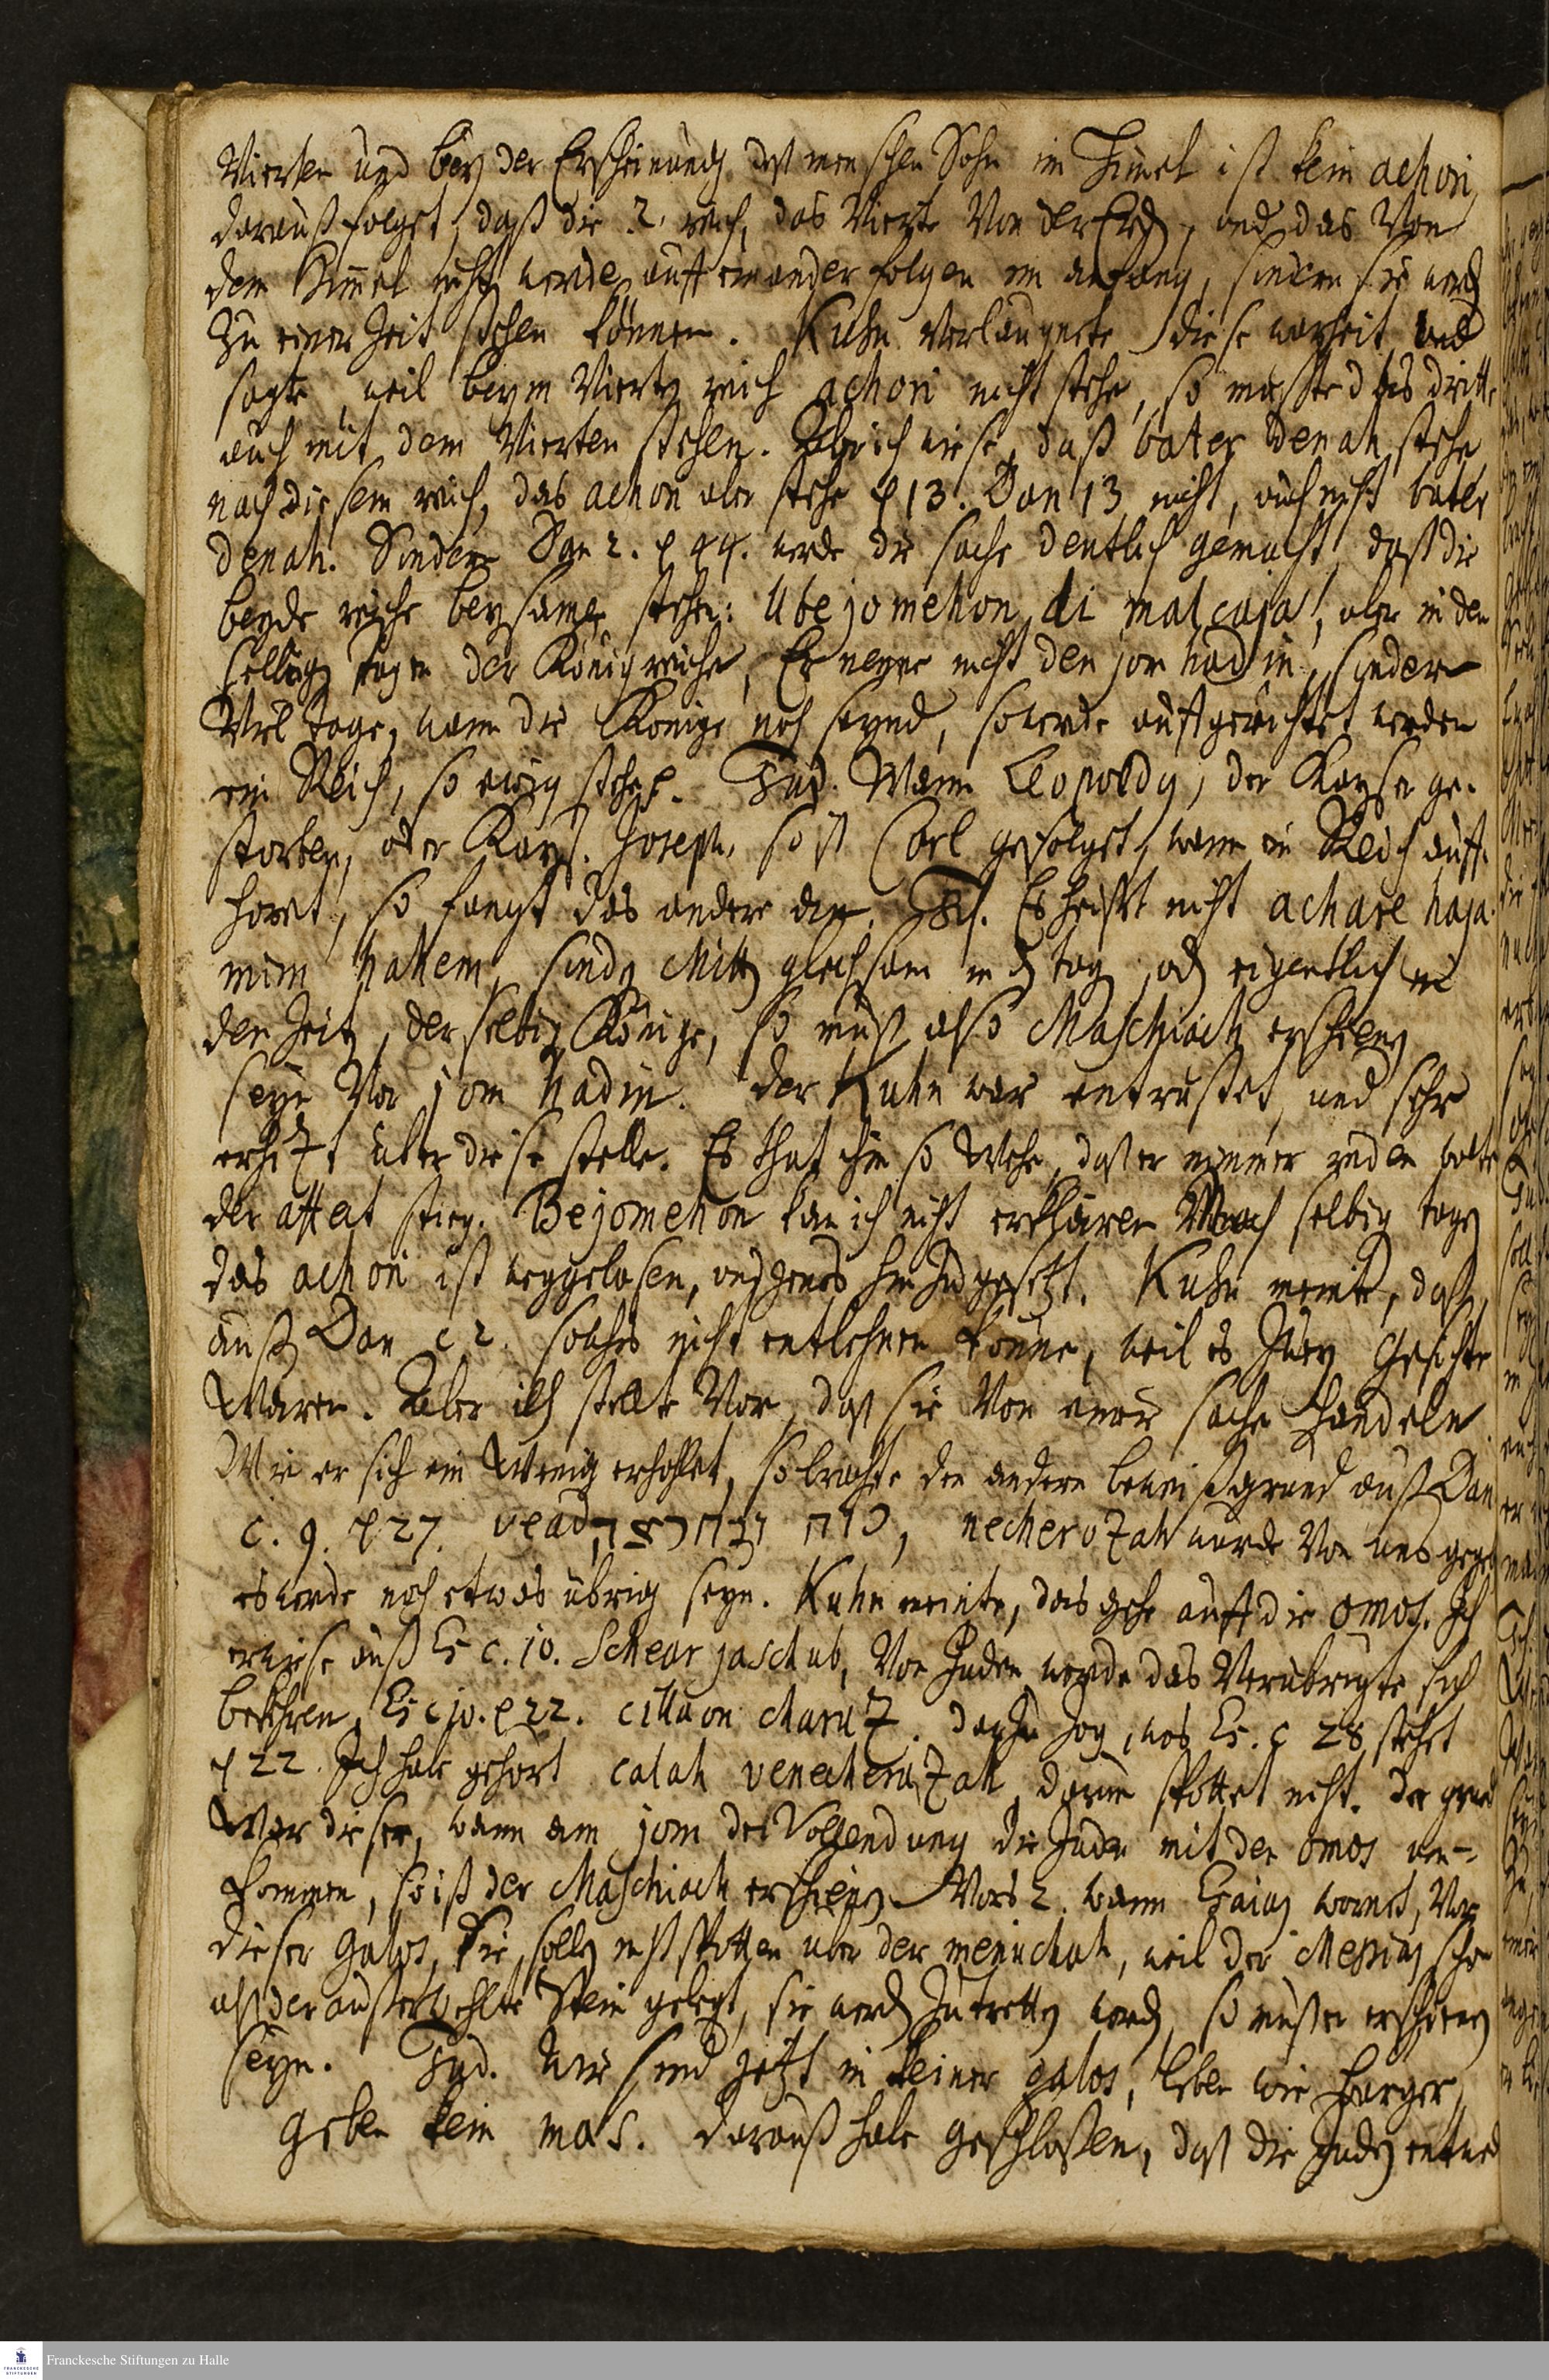 Vierten und bey der Erscheinung deß menschen Sohn im Himel ist kein achori,
darauß folget, daß die 2. reich, das Vierte Von der Erd, und das Von
dem Himel nicht werde auff einander folgen im anfang, sindern sie werd
zu einer Zeit stehen können. Kuhn Verlaugnete diese warheit und
sagte, weil beym Vierten reich achori nicht stehe, so müßte das dritte
auch mit dem Vierten stehen. Aber ich wiese, daß bater denah stehe
nach diesem reich, das achori aber stehe 13. Dan 13 nicht, auch nicht bater
denah. Sindern Dan 2. 44. werde die sache deutlich gemacht, daß die
beyde reiche beysamen stehen: Ubejomehon di malcaja, aber in den
selbigen tagen der Königreiche, Er nenne nicht den jom hadin, sindern
Viel tage, wann die Könige noch seynd, so werde auffgerichtet werden
ein Reich, so ewig stehe. Jud. Wann Leopoldus, der Kayser ge-
storben, oder Kays. Joseph, so ist Carl gefolget, wann ein Reich auff-
horet, so fangt das andere an. Ich. Es heißt nicht achare haja-
mim hahem, sindern Mitten gleichsam in den tag, oder eigentlich in
den Zeiten derselbigen Könige, so muß also Maschiach erschienen
seyn Vor jom hadin. Der Kuhn war entrüstet und sehr
erhitzt über diese stelle. Es that ihm so Wehe, daß er nimmer reden wolte
der affect stieg. Bejomehon kan ich nicht erklären Nach selbigen tagen
das achori ist weggelasen, und jenes hinzugesetzt. Kuhn meinte, daß
auß Dan c 2. solches nicht entlehnen könne, weil es zwey Gesichte
Waren. Aber ich stellte Vor, daß sie Von einer sache handeln.
Wie er sich ein Wenig erhohlet, so brachte den andern beweißgrund auß Dan.
c. 9. 27. vead כלה ונחרצה, necherozah wurde Von uns gege
es werde noch etwas übrig seyn. Kuhn meinte, das gehe auff die omos. Ich
erwiese auß Es c. 10. Schear jaschub, Von Juden werde das Verübrigte sich
bekehren, Es c 10. 22. cillaon charuz. dazu zog, was Es. c 28 stehet
22. Ich habe gehört calah venecheruzah, darum spottet nicht. Der grund
War dieser, wann am jom der Vollendung die Juden mit den omos um-
kommen, so ist der Maschiach erschienen. Vors 2. wann Esaias warnet, Vor
dieser Galos, Sie sollen nicht spotten uber der menuchah, weil der Messias schon
alß der außerwehlte Stein gelegt, sie werden zutretten werden, so müße er erschienen
seyn. Jud. Wir sind jetzt in keiner galos, leben wie burger,
geben kein mas. Darauß habe geschloßen, daß die Juden entwed
Franckesche Stiftungen zu Halle